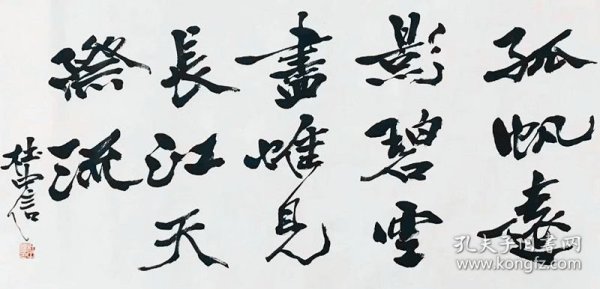 孤帆遠
影碧空
盡唯見
長江天
際流
杜中信
孔夫子旧书网
www.kongfz.com